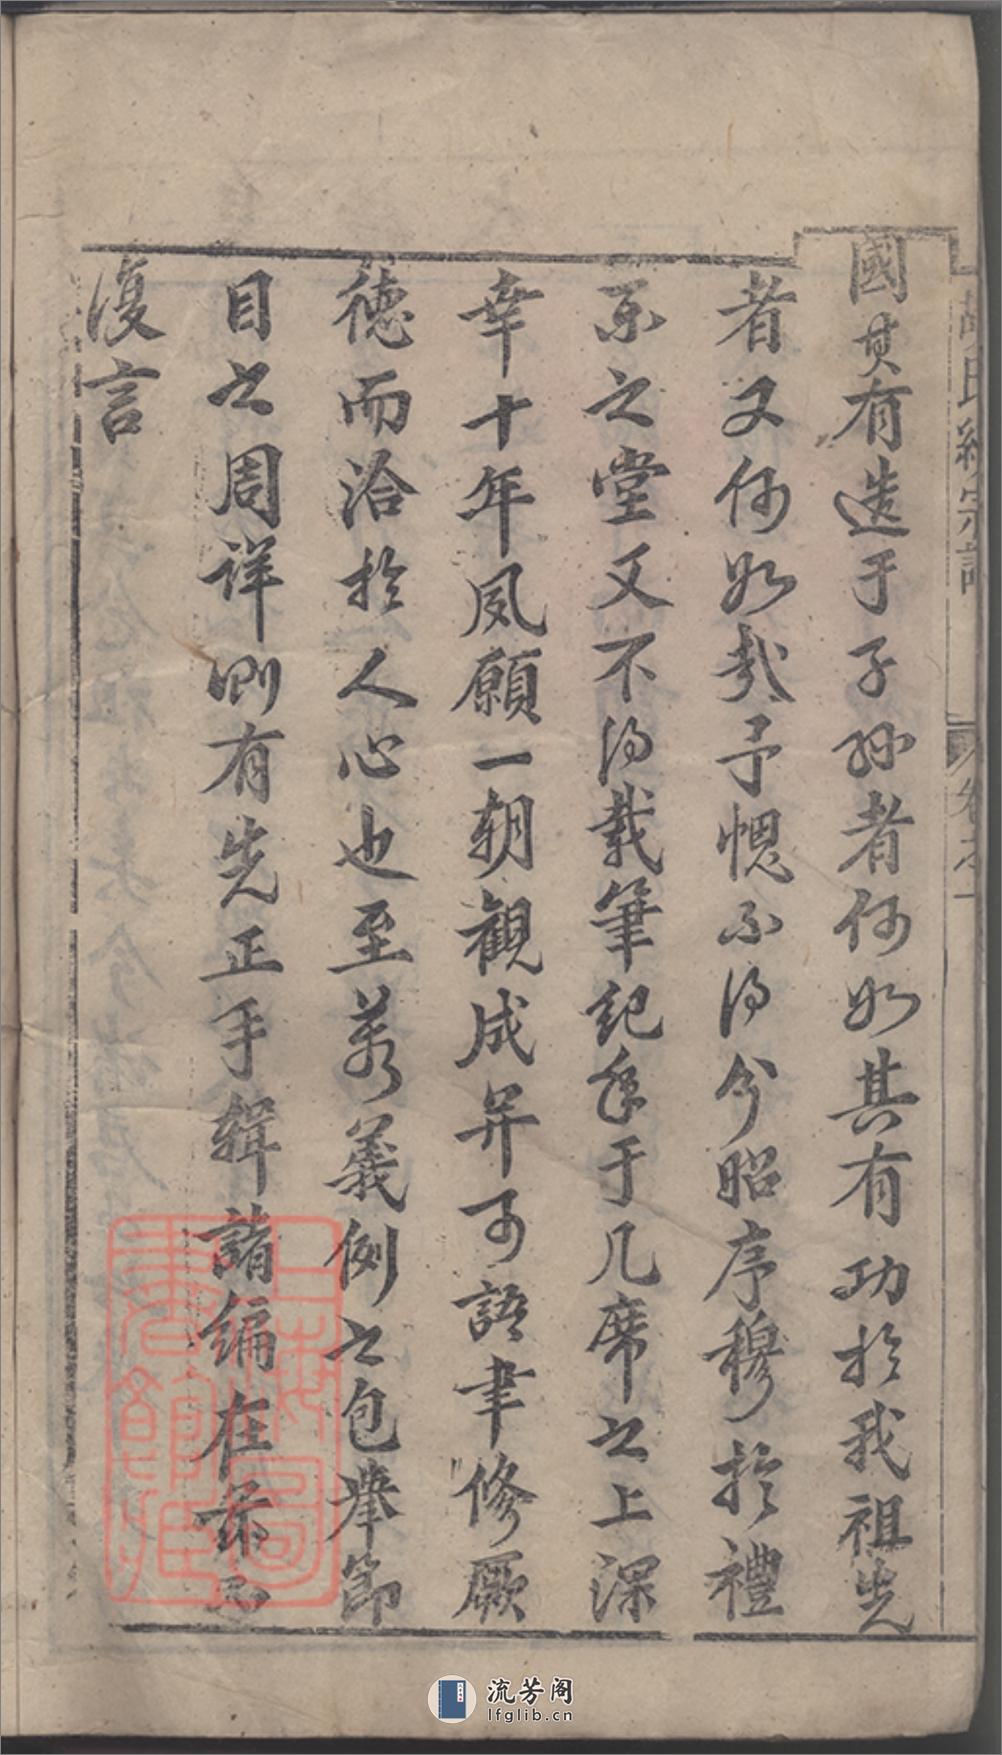 國其有造于子孫者何如其有功於我祖先
者又何如哉予愧不得分昭序穆於禮
宗之堂又不得載筆紀年于几席之上深
幸十年夙願一朝觀成并可語聿修厥
德而洽於人心也至若義例之包舉節
目之周詳則有先正手輯諸編在茲不
復言
胡氏統宗譜
卷之一
上海圖書館藏
流芳阁
lfglib.cn